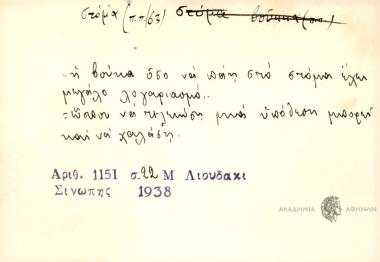 στόμα (π.π/63) στόμα βούκα (π.π.)
"ἡ βούκα ὅσο νὰ πάῃ στὸ στόμα ἔχει
μεγάλο λογαριασμό..
=ὥσπου νὰ τελειώσῃ μιὰ ὑπόθεση μπορεῖ
καὶ νὰ χαλάσῃ.
Αριθ. 1151 σ.22 Μ Λιουδακι
Σινωπης 1938
ΑΚΑΔΗΜΙΑ ΑΘΗΝΩΝ